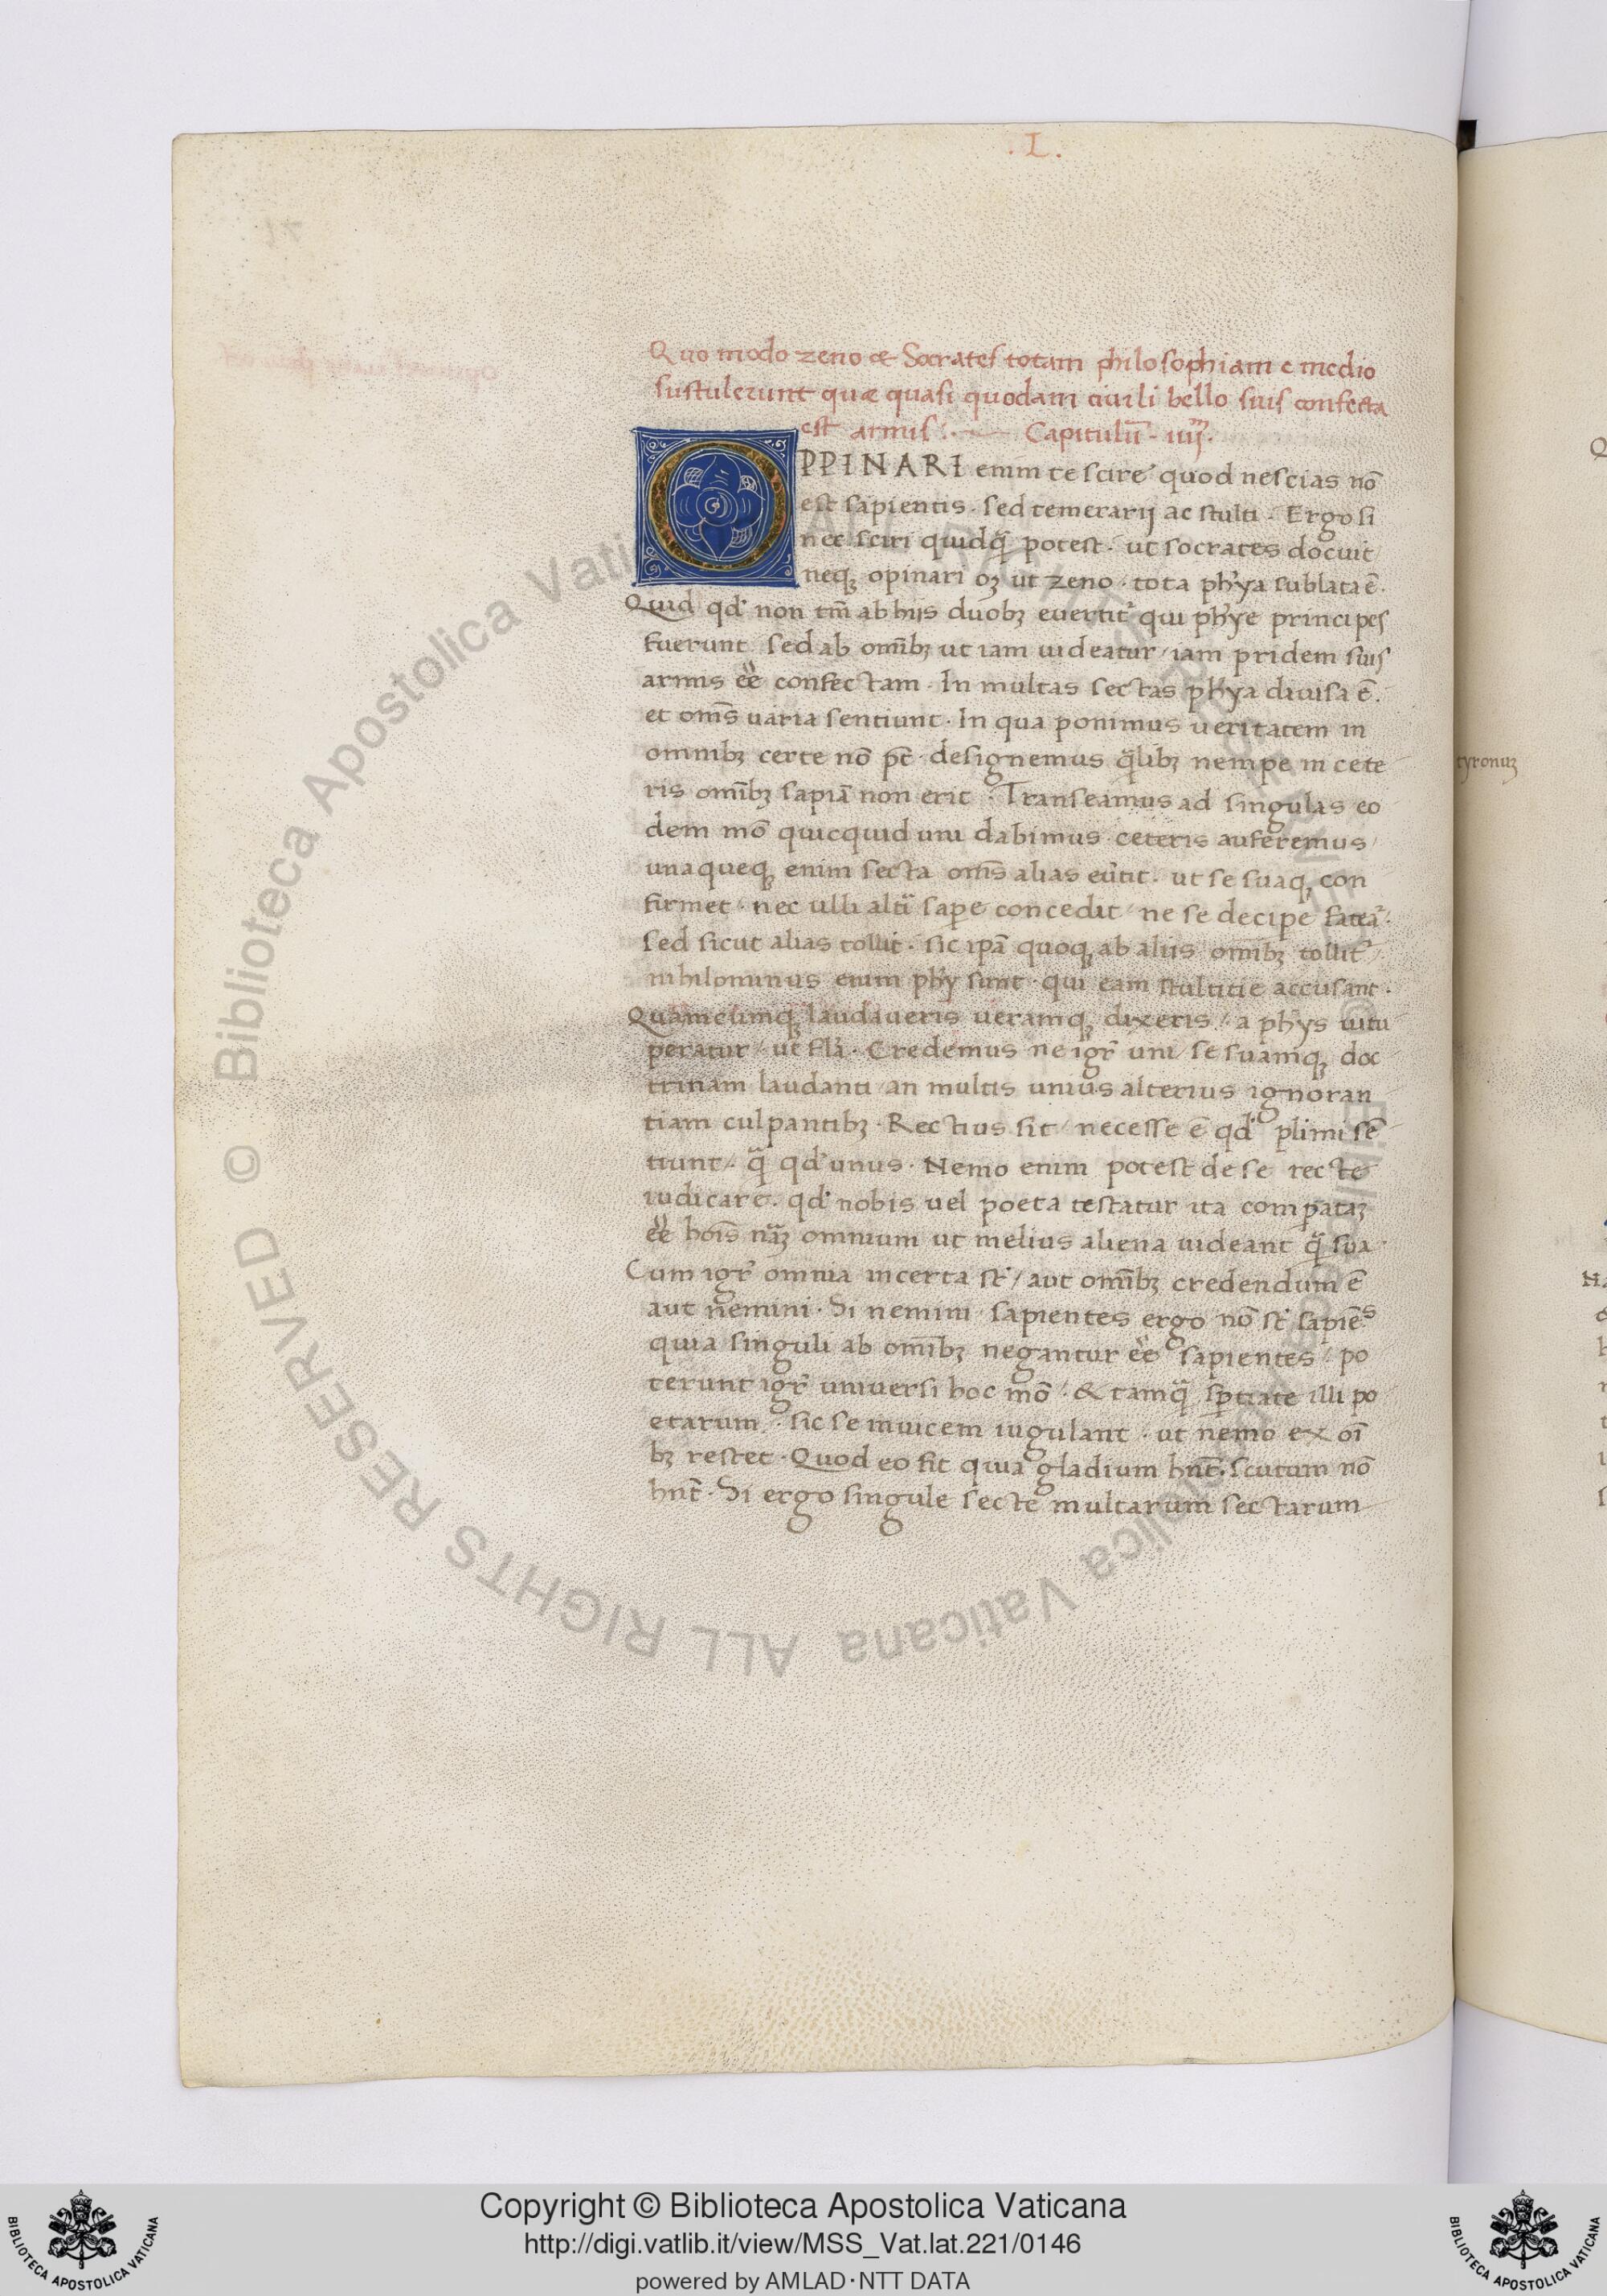 .L.
Quo modo zeno & Socrates totam philosophiam e medio
sustulerunt quæ quasi quodam ciuili bello suis confecta
est armis. Capitulū. iiij.
OPPINARI enim te scire quod nescias nō
est sapientis. sed temerarij ac stulti. Ergo si
nec sciri quidq̄ potest. ut socrates docuit
neqꝫ opinari oꝫ ut zeno. tota ph'ya sublata ē.
Quid qd' non tm̄ ab hijs duobꝫ euertit' qui ph'ye principes
fuerunt. sed ab omībꝫ ut iam uideatur/iam pridem suis
armis eē confectam. In multas sectas ph'ya diuisa ē.
et om̄s uaria sentiunt. In qua ponimus ueritatem in
omnibꝫ certe nō pt̄. designemus q̄libꝫ nempe in cete
ris omībꝫ sapiā non erit. Transeamus ad singulas eo
dem mō quicquid uni dabimus. ceteris auferemus/
unaqueqꝫ enim secta om̄s alias eu'tit. ut se suaqꝫ con
firmet. nec ulli alt'i sape concedit/ne se decipe fatea'.
sed sicut alias tollit. sic ip̄ā quoqꝫ ab aliis omībꝫ tollit'/
nihilominus enim ph'y sunt. qui eam stultitie accusant.
Quamcumqꝫ laudaueris ueramqꝫ dixeris/a ph'ys uitu
peratur/ut fl'a. Credemus ne igr̄ uni/se suamqꝫ doc
trinam laudanti/an multis unius alterius ignoran
tiam culpantibꝫ. Rectius sit/necesse ē qd' plimi sē
tiunt/q̄ qd' unus. Nemo enim potest de se recte
iudicare. qd' nobis uel poeta testatur ita comparataꝫ
eē hoīs nāꝫ omnium ut melius aliena uideant q̄ sua.
Cum igr̄ omnia incerta st̄/aut omībꝫ credendum ē
aut nemini. Si nemini sapientes ergo nō st̄ sapiēs
quia singuli ab omībꝫ negantur eē sapientes/po
terunt igr̄ uniuersi hoc mō. & tamq̄ sp̄tiate illi po
etarum/. sic se inuicem iugulant. ut nemo ex oī
bꝫ restet. Quod eo fit quia gladium hn̄t. scutum nō
hn̄t. Si ergo singule secte multarum sectarum
tyronuꝫ
© Biblioteca Apostolica Vaticana ALL RIGHTS RESERVED
Copyright © Biblioteca Apostolica Vaticana
http://digi.vatlib.it/view/MSS_Vat.lat.221/0146
powered by AMLAD·NTT DATA
BIBLIOTECA APOSTOLICA VATICANA
BIBLIOTECA APOSTOLICA VATICANA